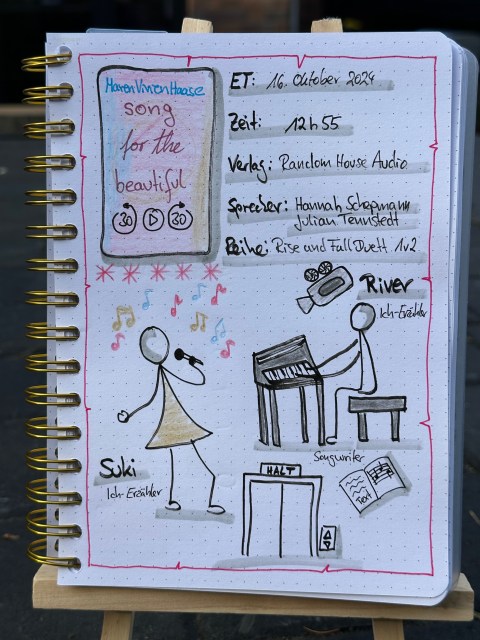 Maren Vivien Haase
song
for the
beautiful
30 30
ET: 16. Oktober 2024
Zeit: 12h55
Verlag: Random House Audio
Sprecher: Hannah Schepmann
Julian Tennstedt
Reihe: Rise and Fall Duett 1v2
River
Ich-Erzähler
Songwriter
Suki
Ich-Erzähler
HALT
Text